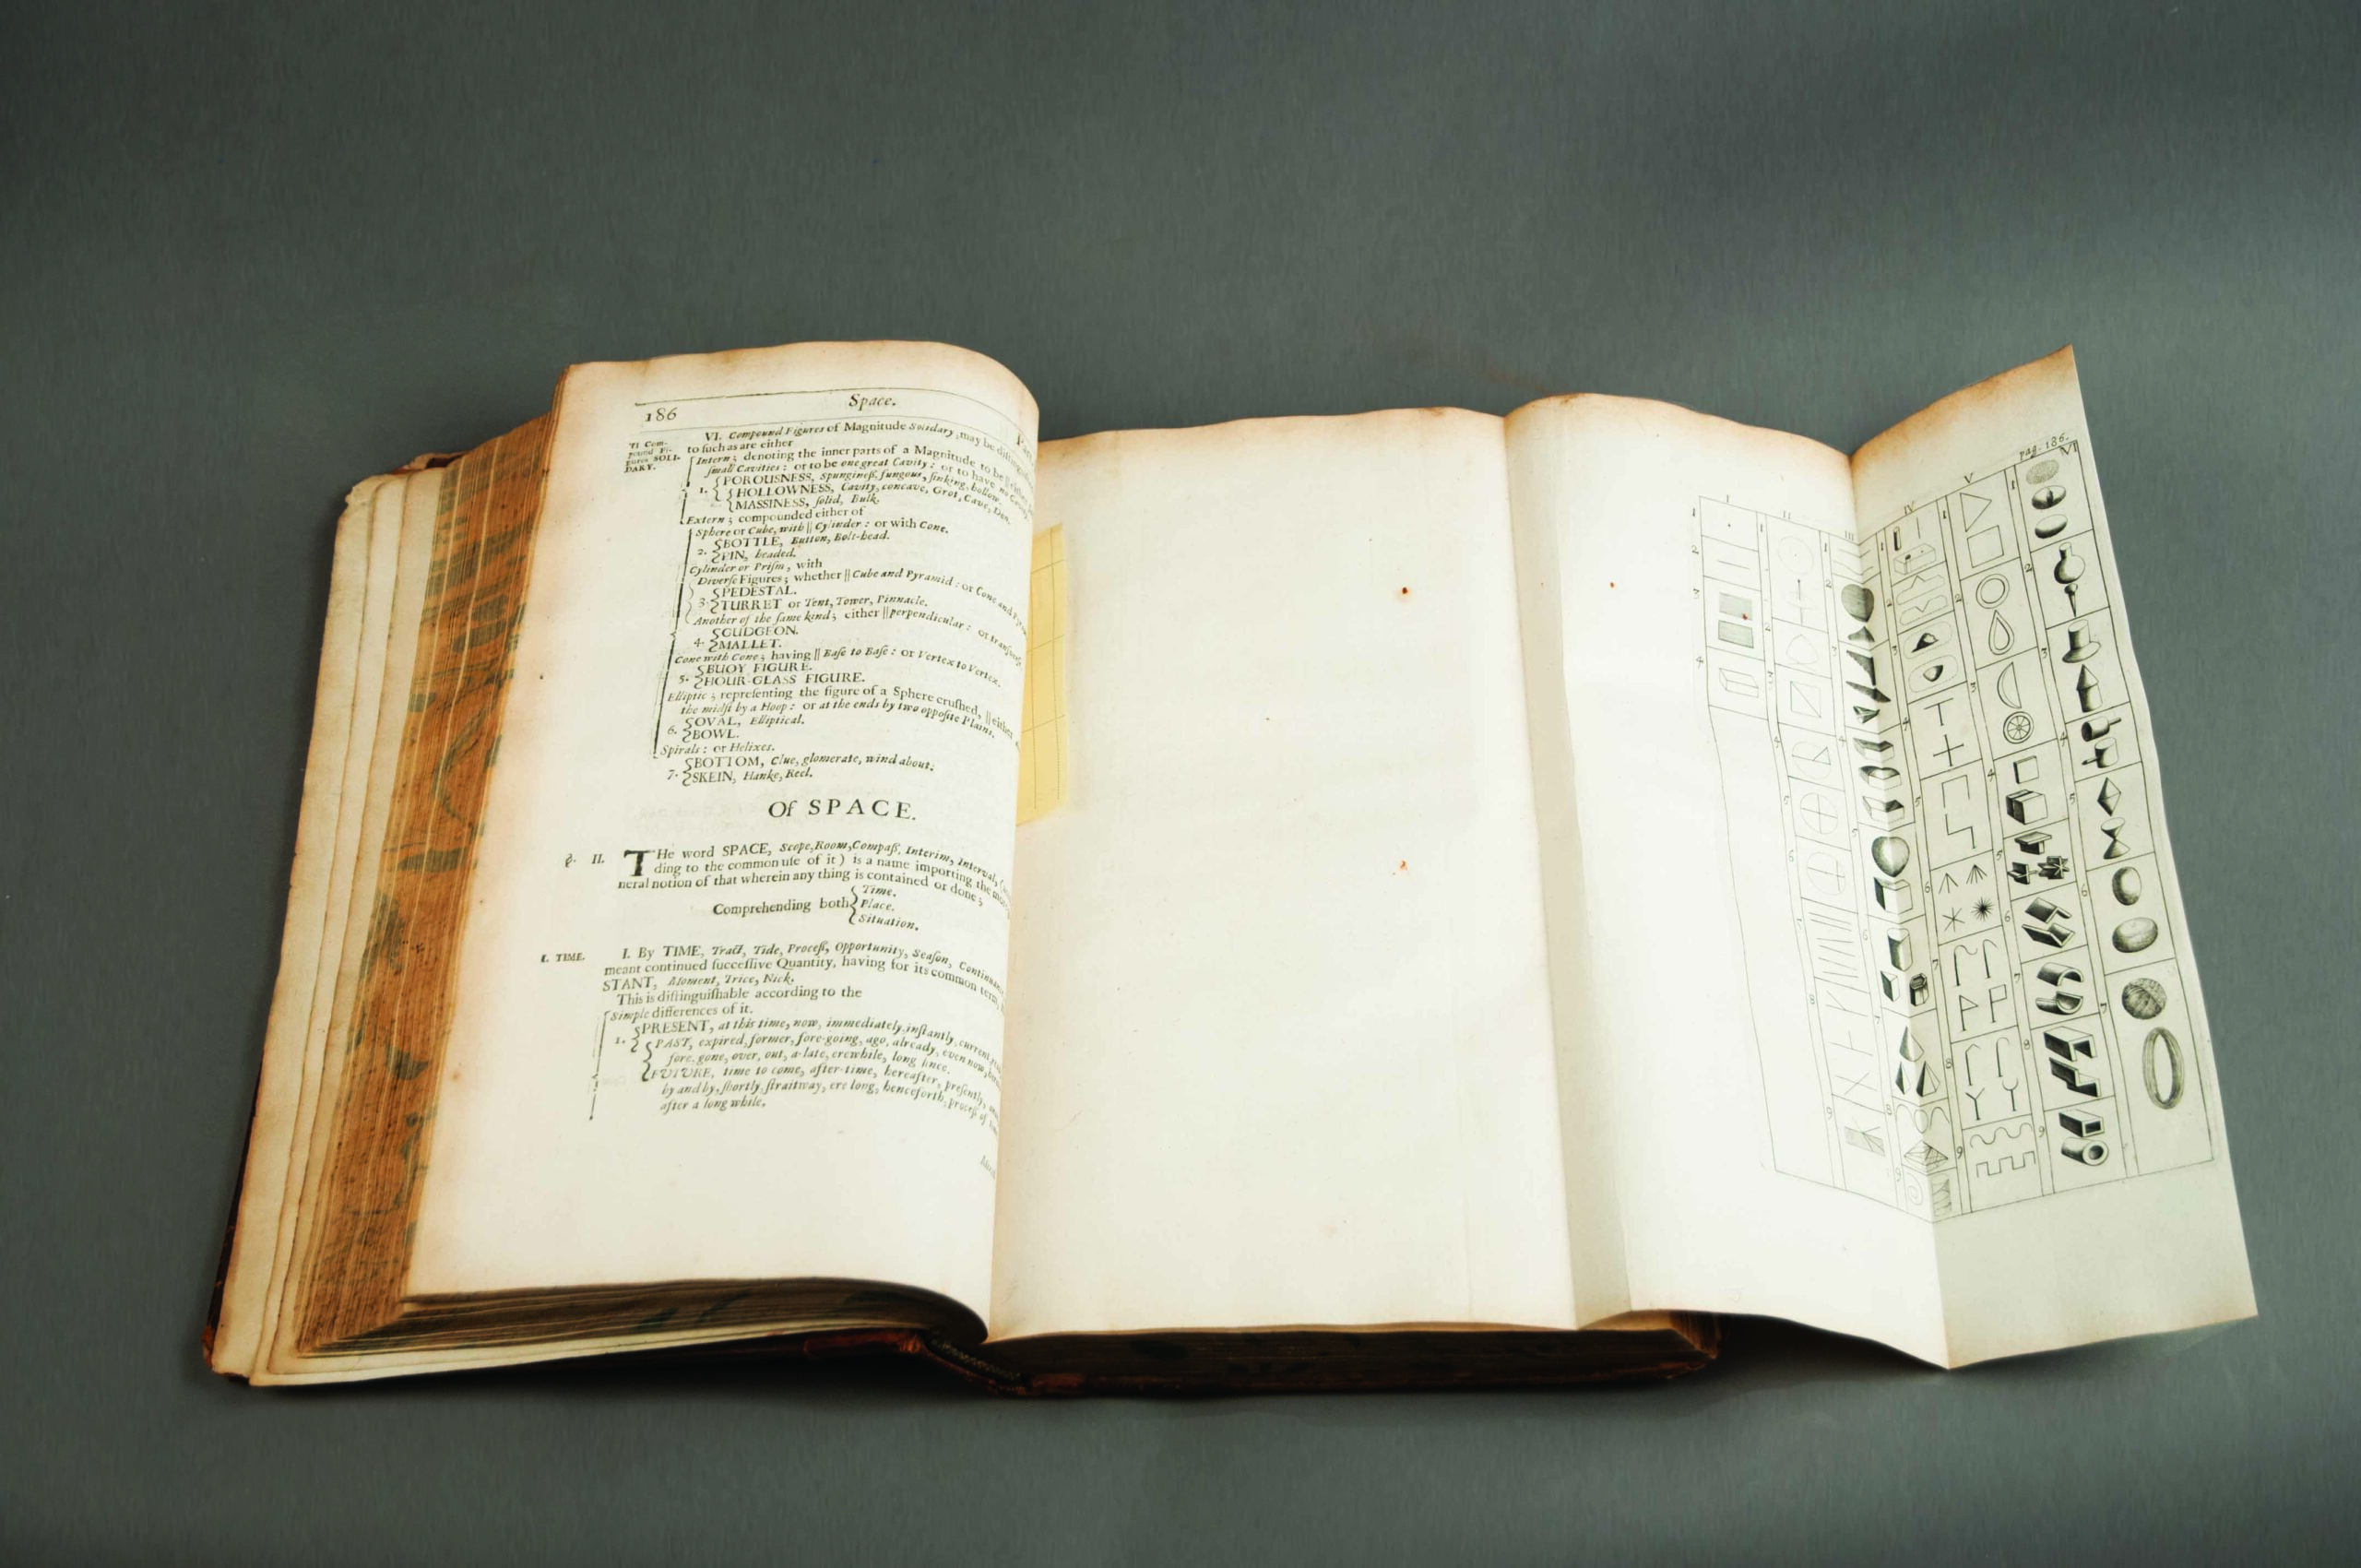 186 Space.
VI. Compound Figures of Magnitude Solidary, may be distinguished
to such as are either
VI Com-
pound Fi-
gures SOLI-
DARY.
Intern; denoting the inner parts of a Magnitude to be || either
ſmall Cavities: or to be one great Cavity: or to have no Cavity.
1. POROUSNESS, Spungineſs, fungous, ſinking, hollow.
HOLLOWNESS, Cavity, concave, Grot, Cave, Den.
MASSINESS, ſolid, Bulk.
Extern; compounded either of
Sphere or Cube, with || Cylinder: or with Cone.
2. BOTTLE, Button, Bolt-head.
PIN, headed.
Cylinder or Priſm, with
Diverſe Figures; whether || Cube and Pyramid: or Cone and
3. PEDESTAL.
TURRET or Tent, Tower, Pinnacle.
Another of the ſame kind; either || perpendicular: or tranſverſe
4. GUDGEON.
MALLET.
Cone with Cone; having || Baſe to Baſe: or Vertex to Vertex.
5. BUOY FIGURE.
HOUR-GLASS FIGURE.
Elliptic; repreſenting the figure of a Sphere cruſhed, || either
the midſt by a Hoop: or at the ends by two oppoſite Plains.
6. OVAL, Elliptical.
BOWL.
Spirals: or Helixes.
7. BOTTOM, Clue, glomerate, wind about.
SKEIN, Hanke, Reel.
Of SPACE.
§. II. THe word SPACE, Scope, Room, Compaſs, Interim, Interval,
ding to the common uſe of it) is a name importing the
neral notion of that wherein any thing is contained or done;
Comprehending both
Time.
Place.
Situation.
I. TIME. I. By TIME, Tract, Tide, Proceſs, Opportunity, Seaſon,
meant continued ſucceſſive Quantity, having for its common term,
STANT, Moment, Trice, Nick.
This is diſtinguiſhable according to the
Simple differences of it.
1. PRESENT, at this time, now, immediately, inſtantly, current,
PAST, expired, former, fore-going, ago, already, even now,
fore, gone, over, out, a-late, erewhile, long ſince.
FUTURE, time to come, after-time, hereafter, preſently,
by and by, ſhortly, ſtraitway, ere long, henceforth, proceſs of
after a long while.
pag. 186.
I II III IV V VI
1 1 1 1 1 1
2 2 2 2 2 2
3 3 3 3 3 3
4 4 4 4 4 4
5 5 5 5 5
6 6 6 6 6
7 7 7 7 7
8 8 8 8
9 9 9 9